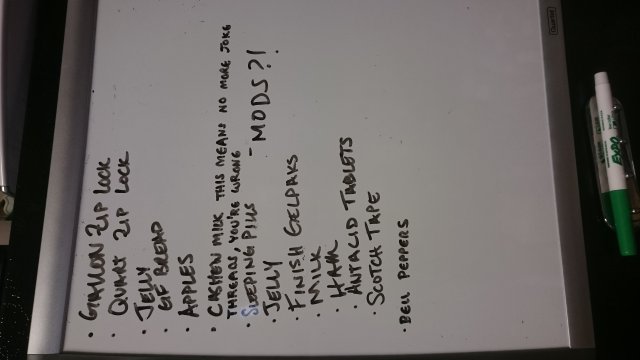 • GALLON ZIP LOCK
• QUART ZIP LOCK
• JELLY
• GF BREAD
• APPLES
• CASHEW MILK THIS MEANS NO MORE JOKE
THREADS, YOU'RE WRONG
• SLEEPING PILLS - MODS?!
• JELLY
• FINISH GELPAKS
• MILK
• HAM
• ANTACID TABLETS
• SCOTCH TAPE
• BELL PEPPERS
Quartet
EXPO